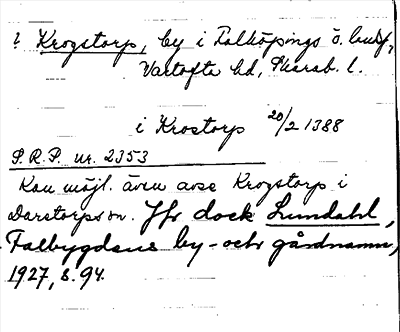 ? Krogstorp, by i Falköpings ö. landsf.,
Vartofta hd, Skarab. l.
i Krostorp 20/2 1388
S.R.P. nr. 2353
Kan möjl. även avse Krogstorp i
Daretorps sn. Jfr dock Lundahl,
Falbygdens by- och gårdnamn,
1927, s. 94.